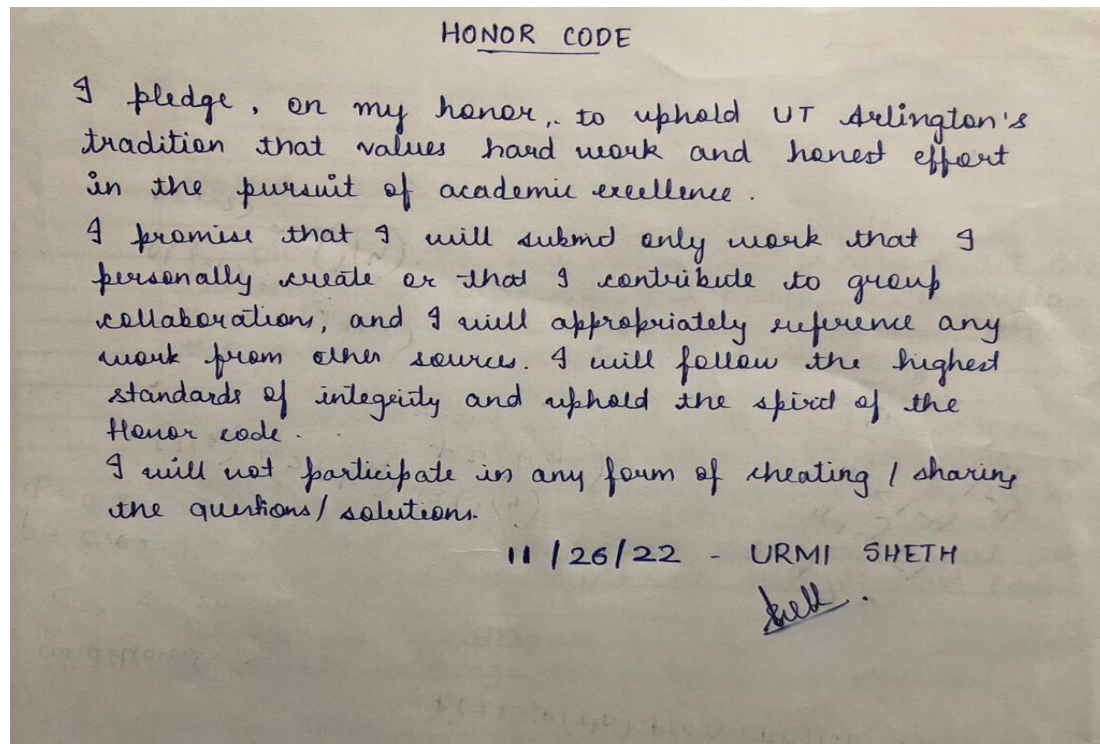 HONOR CODE
I pledge, on my honor, to uphold UT Arlington's
tradition that values hard work and honest effort
in the pursuit of academic excellence.
I promise that I will submit only work that I
personally create or that I contribute to group
collaborations, and I will appropriately reference any
work from other sources. I will follow the highest
standards of integrity and uphold the spirit of the
Honor code.
I will not participate in any form of cheating / sharing
the questions / solutions.
11/26/22 - URMI SHETH